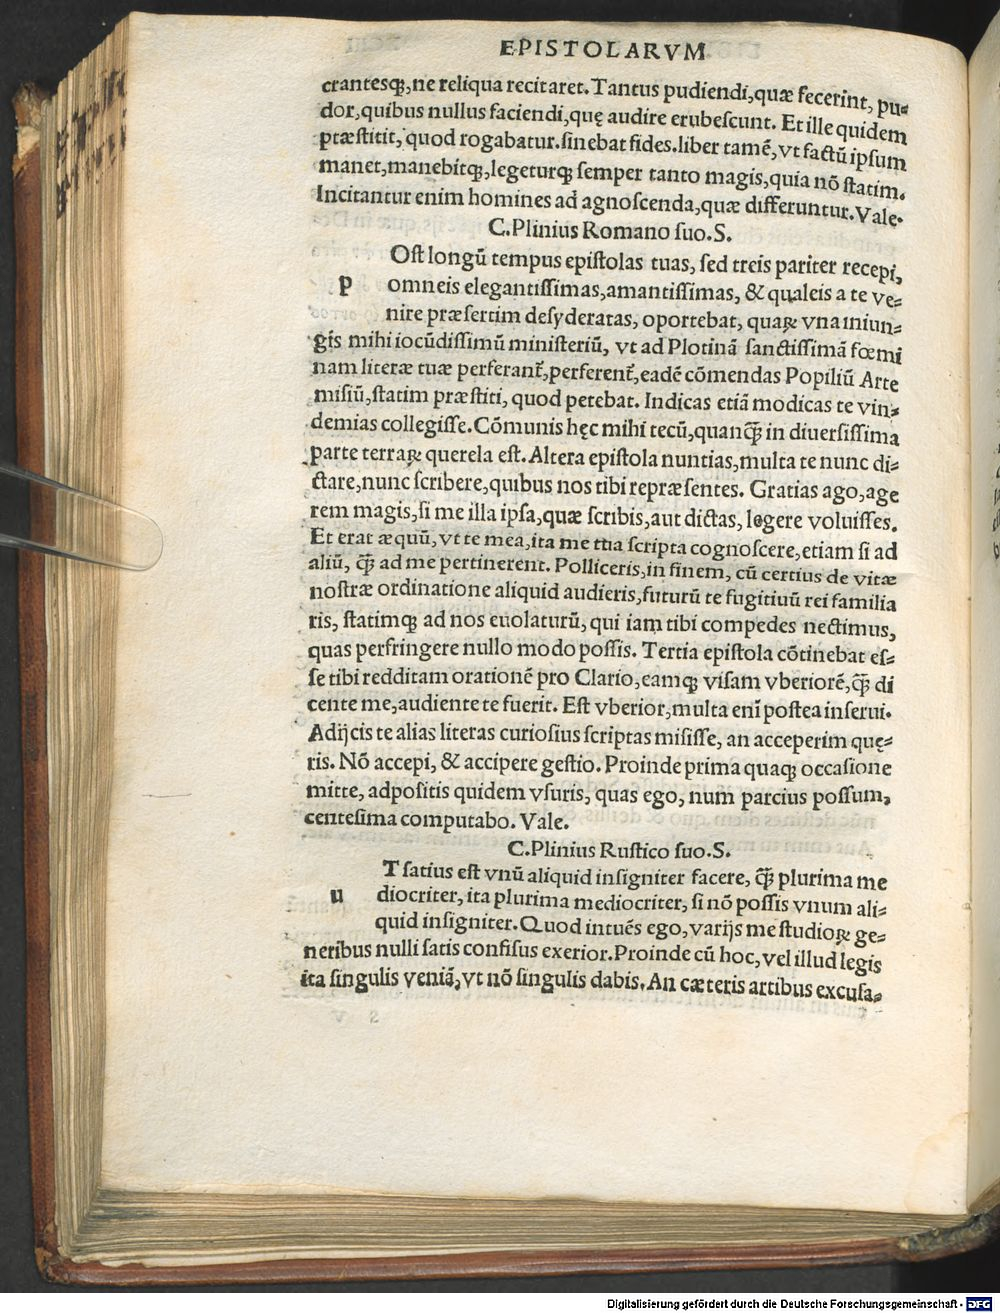 EPISTOLARVM
crantesqꝫ, ne reliqua recitaret. Tantus pudiendi, quæ fecerint, pu-
dor, quibus nullus faciendi, quę audire erubescunt. Et ille quidem
præstitit, quod rogabatur. sinebat fides. liber tamē, vt factū ipsum
manet, manebitqꝫ, legeturqꝫ semper tanto magis, quia nō statim.
Incitantur enim homines ad agnoscenda, quæ differuntur. Vale.
C. Plinius Romano suo. S.
Ost longū tempus epistolas tuas, sed treis pariter recepi,
p omneis elegantissimas, amantissimas, & qualeis a te ve-
nire præsertim desyderatas, oportebat, quaꝝ vna iniun-
gis mihi iocūdissimū ministeriū, vt ad Plotinā sanctissimā fœmi
nam literæ tuæ perferant̃, perferent̃, eadē cōmendas Popiliū Arte
misiū, statim præstiti, quod petebat. Indicas etiā modicas te vin-
demias collegisse. Cōmunis hęc mihi tecū, quanꝙ̃ in diuersissima
parte terraꝝ querela est. Altera epistola nuntias, multa te nunc di-
ctare, nunc scribere, quibus nos tibi repræsentes. Gratias ago, age
rem magis, si me illa ipsa, quæ scribis, aut dictas, legere voluisses.
Et erat æquū, vt te mea, ita me tua scripta cognoscere, etiam si ad
aliū, ꝙ̃ ad me pertinerent. Polliceris, in finem, cū certius de vitæ
nostræ ordinatione aliquid audieris, futurū te fugitiuū rei familia
ris, statimqꝫ ad nos euolaturū, qui iam tibi compedes nectimus,
quas perfringere nullo modo possis. Tertia epistola cōtinebat es-
se tibi redditam orationē pro Clario, eamqꝫ visam vberiorē, ꝙ̃ di
cente me, audiente te fuerit. Est vberior, multa eni postea inserui.
Adijcis te alias literas curiosius scriptas misisse, an acceperim quę-
ris. Nō accepi, & accipere gestio. Proinde prima quaqꝫ occasione
mitte, adpositis quidem vsuris, quas ego, num parcius possum,
centesima computabo. Vale.
C. Plinius Rustico suo. S.
T satius est vnū aliquid insigniter facere, ꝙ̃ plurima me
u diocriter, ita plurima mediocriter, si nō possis vnum ali-
quid insigniter. Quod intuēs ego, varijs me studioꝝ ge-
neribus nulli satis confisus exerior. Proinde cū hoc, vel illud legis
ita singulis veniā, vt nō singulis dabis. An cæteris artibus excusa-
Digitalisierung gefördert durch die Deutsche Forschungsgemeinschaft - DFG